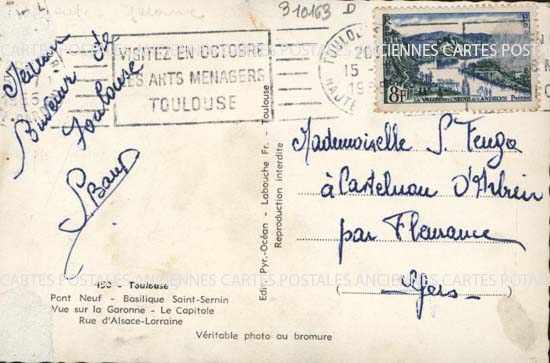 310163 D
VISITEZ EN OCTOBRE
LES ARTS MENAGERS
TOULOUSE
TOULOU
20
15
19
HAUTE
8F
LA VALLÉE DE LA SEINE AUX ANDELYS
Meilleur
Bonjour de
Toulouse
Mademoiselle S.
à Castelnau D'Arbieu
par Fleurance
Gers
Edit. Pyr.-Océan - Labouche Fr. - Toulouse
Reproduction interdite
CARTES POSTALES ANCIENNES CARTES POSTALES ANCIENNES CARTES POSTALES
- Toulouse
Pont Neuf - Basilique Saint-Sernin
Vue sur la Garonne - Le Capitole
Rue d'Alsace-Lorraine
Véritable photo au bromure